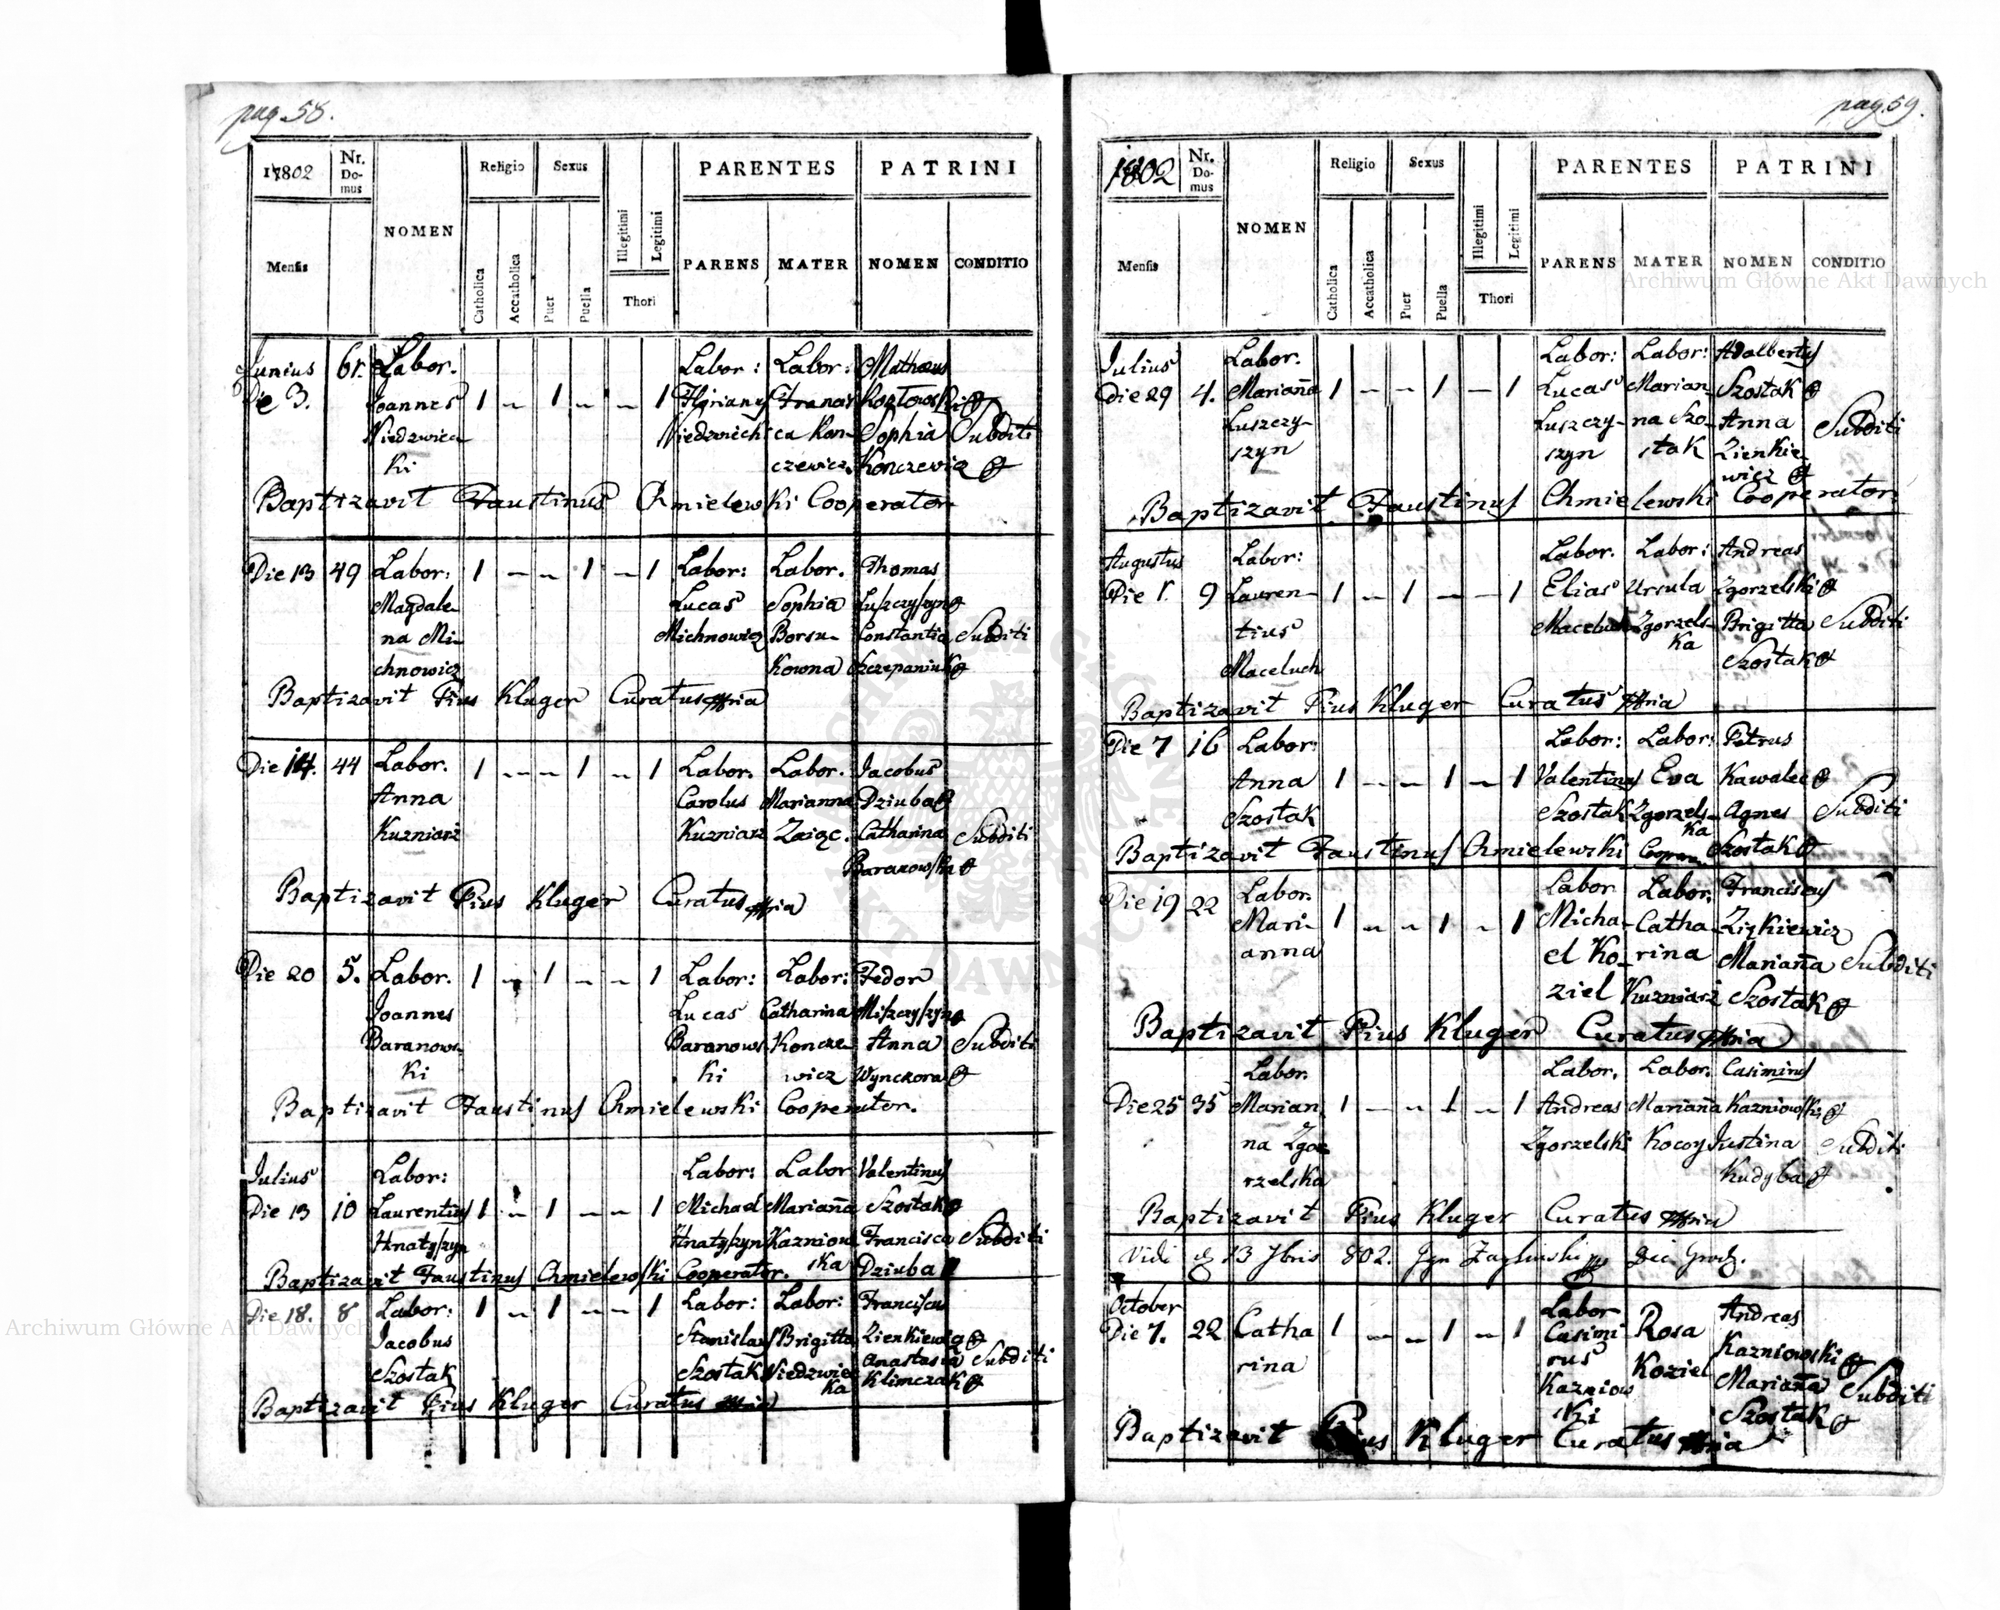 pag. 58.
1802
Nr. Domus
NOMEN
Religio
Sexus
Illegitimi
Legitimi
PARENTES
PATRINI
Mensis
Catholica
Accatholica
Puer
Puella
Thori
PARENS
MATER
NOMEN
CONDITIO
Junius 61. Labor. Labor: Labor: Mathæus
Die 3. Joannes 1 – 1 – – 1
Niedzwiec- Sophia Subditi
ki czewicz. Konczewicz
Baptizavit Faustinus Chmielewski Cooperator
Die 13 49 Labor: 1 – – 1 – 1 Labor: Labor. Thomas
Magdale- Lucas Sophia Luszczyszyn
na Mi- Michnowicz Borsu- Constantia Subditi
chnowicz kowna Szczepaniuk
Baptizavit Pius Kluger Curatus
Die 14. 44 Labor. 1 – – 1 – 1 Labor. Labor. Jacobus
Anna Carolus Marianna Dziuba
Kuzniarz Kuzniarz Zaiąc. Catharina Subditi
Baranowska
Baptizavit Pius Kluger Curatus
Die 20 5. Labor. 1 – 1 – – 1 Labor: Labor: Fedor
Joannes Lucas Catharina Miszczyszyn
Baranows- Baranows- Koncze- Anna Subditi
ki ki wicz Wynczora
Baptizavit Faustinus Chmielewski Cooperator.
Julius Labor: Labor: Labor Valentinus
Die 13 10 Laurentius 1 – 1 – – 1 Michael Mariana Szostak
Hnatyszyn Hnatyszyn Kazniow- Francisca Subditi
Baptizavit Faustinus Chmielewski Cooperator. ska Dziuba
Die 18. 8 Labor: 1 – 1 – – 1 Labor: Labor: Franciscus
Jacobus Stanislaus Brigitta Zienkiewicz
Anastasia Subditi
Szostak Szostak Niedzwiec- Klimczak
ka
Baptizavit Pius Kluger Curatus
pag. 59.
1802
Nr. Domus
NOMEN
Religio
Sexus
Illegitimi
Legitimi
PARENTES
PATRINI
Mensis
Catholica
Accatholica
Puer
Puella
Thori
PARENS
MATER
NOMEN
CONDITIO
Archiwum Główne Akt Dawnych
Julius Labor. Labor: Labor: Adalbertus
Die 29 4. Mariana 1 – – 1 – 1 Lucas Marian- Szostak
Luszczy- Luszczy- na Szo- Anna Subditi
szyn szyn stak Zienkie-
wicz
Baptizavit Faustinus Chmielewski Cooperator.
Augustus Labor: Labor. Labor: Andreas
Die 1. 9 Lauren- 1 – 1 – – 1 Elias Ursula Zgorzelski
tius Maceluch Zgorzels- Brigitta Subditi
ka
Maceluch Szostak
Baptizavit Pius Kluger Curatus
Die 7 16 Labor: Labor: Labor: Petrus
Anna 1 – – 1 – 1 Valentinus Eva Kawalec
Szostak Szostak Zgorzels- Agnes Subditi
ka
Baptizavit Faustinus Chmielewski Szostak
Die 19 22 Labor. Labor Labor. Franciscus
Mari- 1 – – 1 – 1 Micha- Catha- Zizkiewicz
anna el Ko- rina Mariana Subditi
ziel Kuzniarz Szostak
Baptizavit Pius Kluger Curatus
Labor. Labor. Labor. Casimirus
Die 25 35 Marian 1 – – 1 – 1 Andreas Mariana Kazniowski
na Zgo- Zgorzelski Kocoy Justina Subditi
rzelska Kudyba
Baptizavit Pius Kluger Curatus
Vidi 13 7bris 802.
October Labor Andreas
Die 7. 22 Catha 1 – – 1 – 1 Casimi Rosa Kazniowski
rina rus Koziel Mariana Subditi
Kazniow Szostak
ski
Baptizavit Pius Kluger Curatus
Archiwum Główne Akt Dawnych